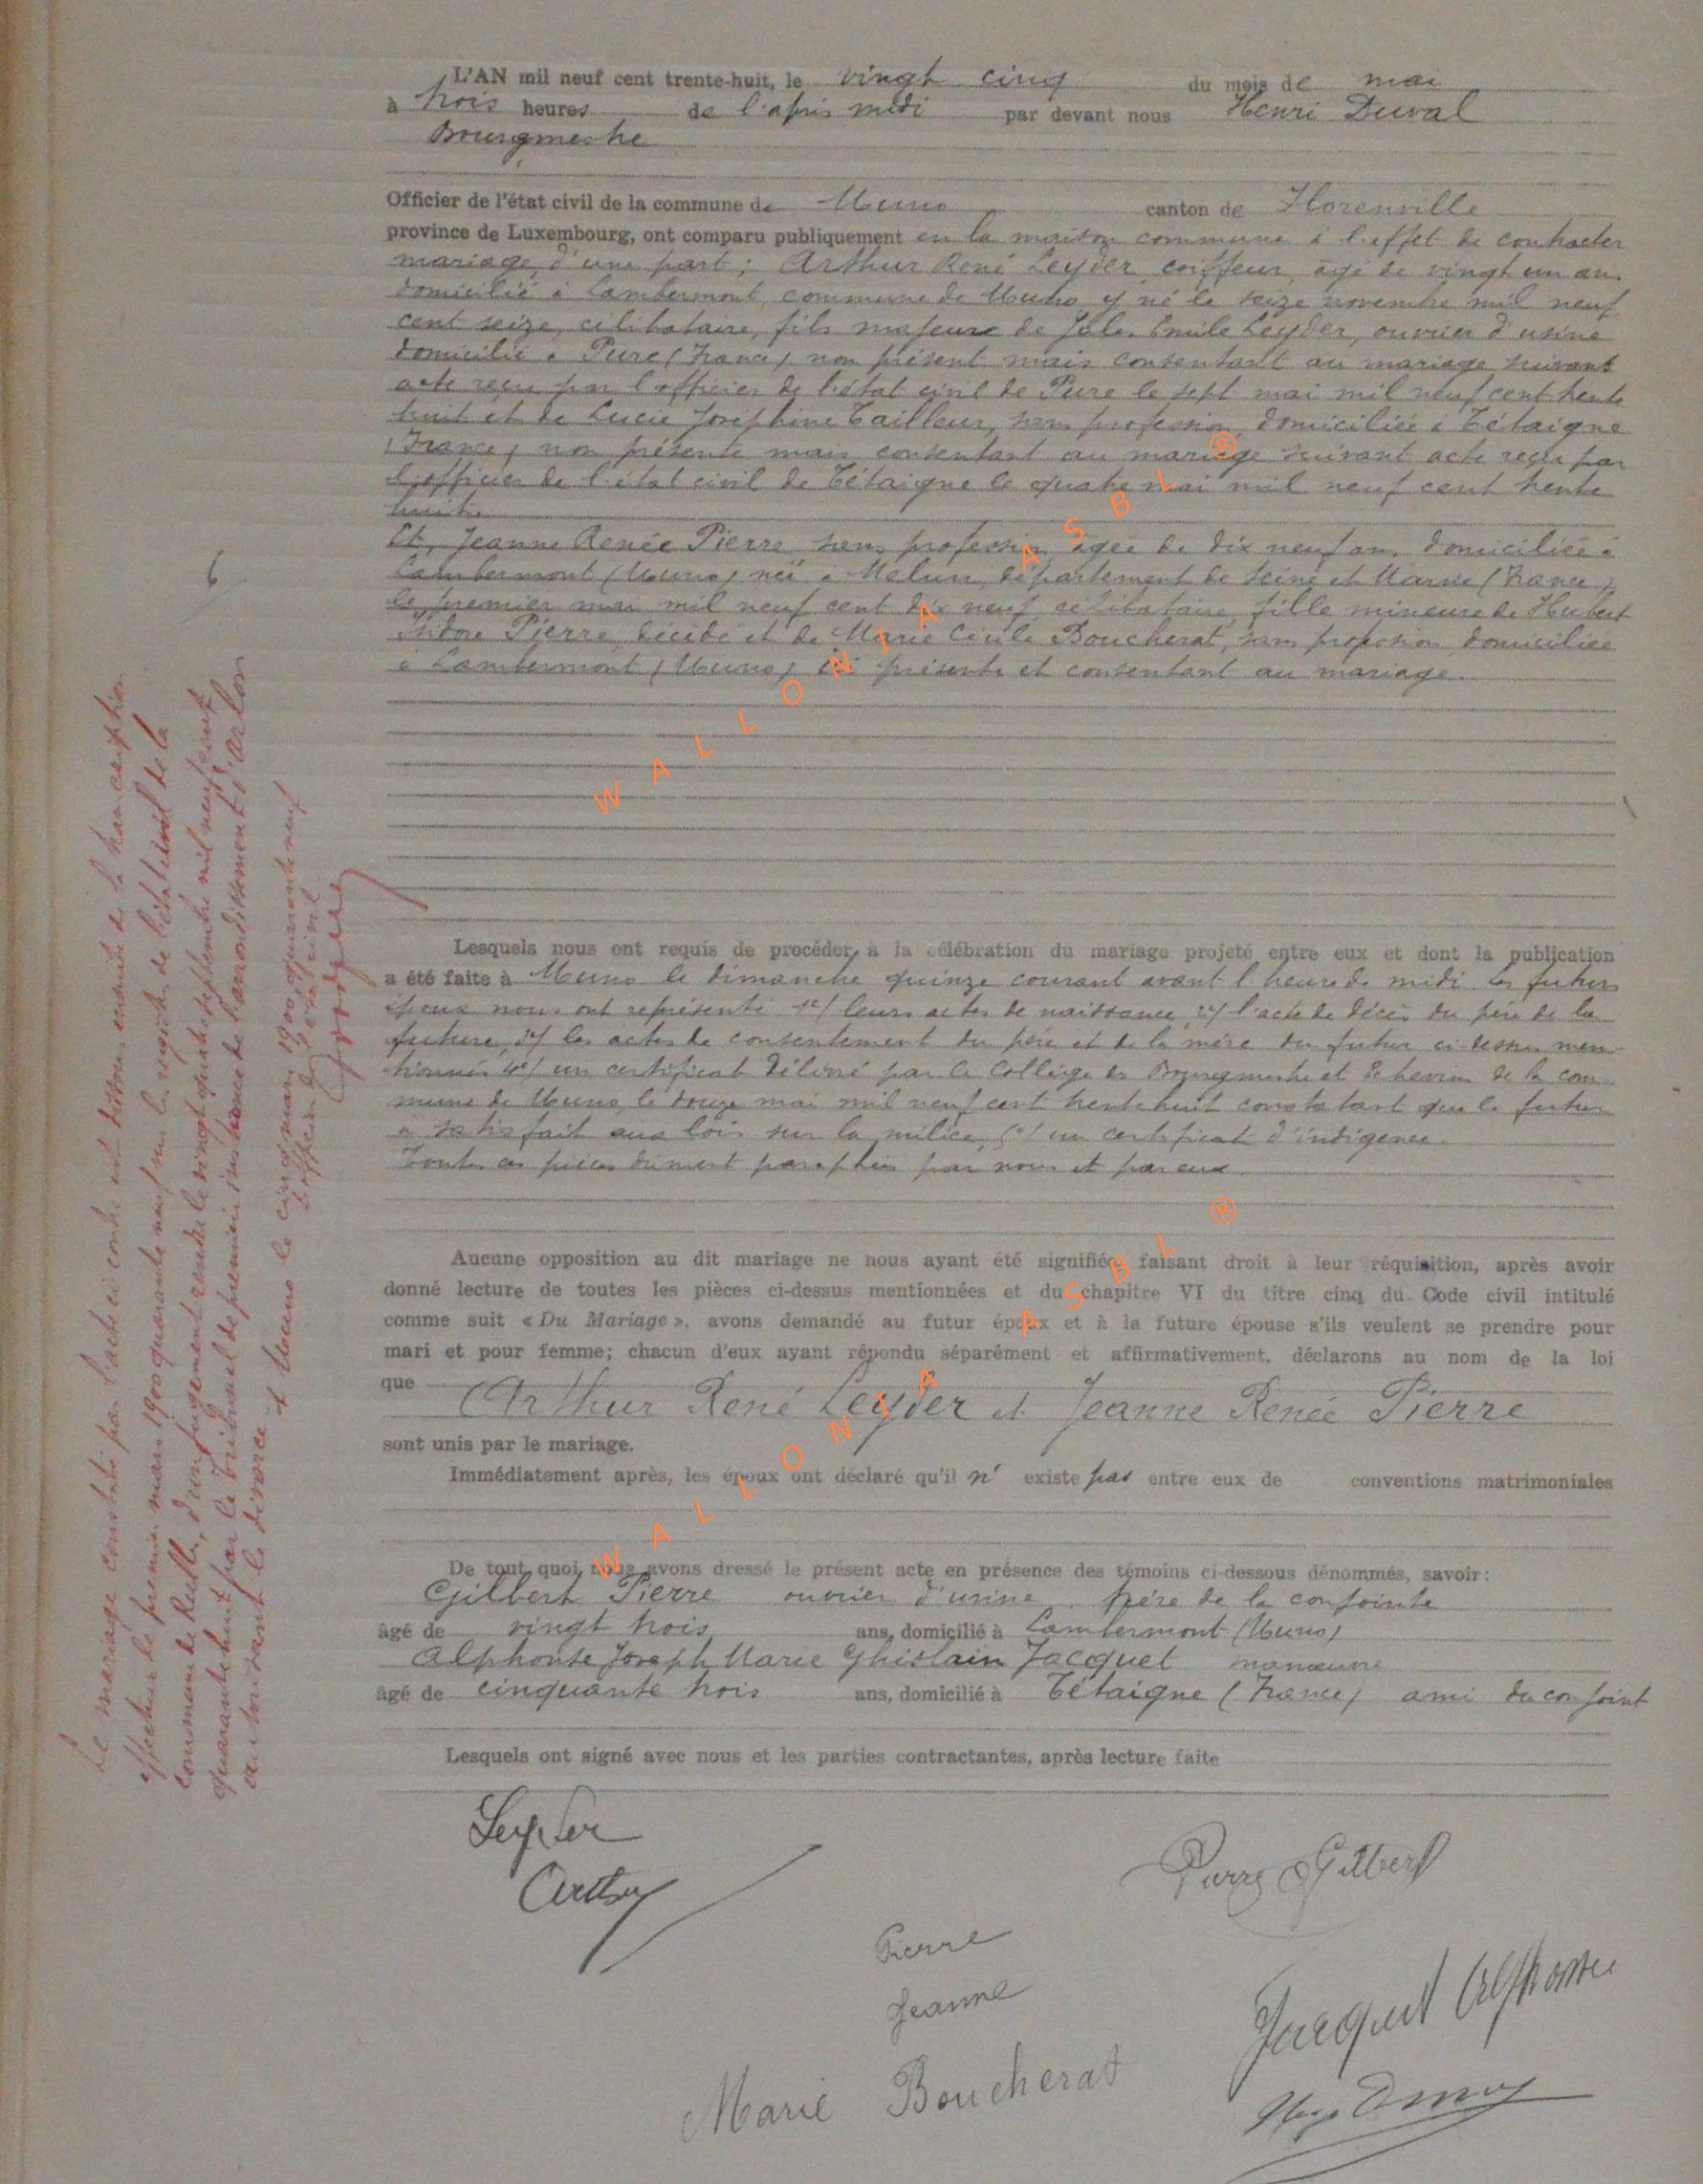 L'AN mil neuf cent trente-huit, le vingt cinq du mois de mai
à trois heures de l'après midi par devant nous Henri Duval
Bourgmestre
Officier de l'état civil de la commune de Muno canton de Florenville
province de Luxembourg, ont comparu publiquement en la maison commune à l'effet de contracter
mariage, d'une part: Arthur René Leyder, coiffeur, âgé de vingt un an
domicilié à Lambermont, commune de Muno y né le seize novembre mil neuf
cent seize, célibataire, fils majeur de Jules Emile Leyder, ouvrier d'usine
domicilié à Pure (France) non présent mais consentant au mariage suivant
acte reçu par l'officier de l'état civil de Pure le sept mai mil neuf cent trente
huit et de Lucie Joséphine Tailleur, sans profession, domiciliée à Tétaigne
(France) non présente mais consentant au mariage suivant acte reçu par
l'officier de l'état civil de Tétaigne le quatre mai mil neuf cent trente
huit.
Et, Jeanne Renée Pierre sans profession âgée de dix neuf ans domiciliée à
Lambermont (Muno) née à Melun département de Seine et Marne (France)
le premier mai mil neuf cent dix neuf, célibataire, fille mineure de Hubert
Isidore Pierre, décédé et de Marie Cécile Boucherat, sans profession domiciliée
à Lambermont (Muno) ici présente et consentant au mariage.
6
Lesquels nous ont requis de procéder, à la célébration du mariage projeté entre eux et dont la publication
a été faite à Muno le dimanche quinze courant avant l'heure de midi les futurs
époux nous ont représenté 1°/ leurs actes de naissance, 2°/ l'acte de décès du père de la
future, 3°/ les actes de consentement du père et de la mère du futur ci-dessus men
tionnés 4°/ un certificat délivré par le Collège des Bourgmestre et Echevins de la com
mune de Muno, le douze mai mil neuf cent trente huit constatant que le futur
a satisfait aux lois sur la milice, 5°/ un certificat d'indigence.
Toutes ces pièces dûment paraphées par nous et par eux.
Aucune opposition au dit mariage ne nous ayant été signifiée, faisant droit à leur réquisition, après avoir
donné lecture de toutes les pièces ci-dessus mentionnées et du chapitre VI du titre cinq du Code civil intitulé
comme suit « Du Mariage », avons demandé au futur époux et à la future épouse s'ils veulent se prendre pour
mari et pour femme; chacun d'eux ayant répondu séparément et affirmativement, déclarons au nom de la loi
que Arthur René Leyder et Jeanne Renée Pierre
sont unis par le mariage.
Immédiatement après, les époux ont déclaré qu'il n' existe pas entre eux de conventions matrimoniales
De tout quoi, nous avons dressé le présent acte en présence des témoins ci-dessous dénommés, savoir:
Gilbert Pierre ouvrier d'usine, frère de la conjointe
âgé de vingt trois ans, domicilié à Lambermont (Muno)
Alphonse Joseph Marie Ghislain Jacquet manœuvre
âgé de cinquante trois ans, domicilié à Tétaigne (France) ami du conjoint
Lesquels ont signé avec nous et les parties contractantes, après lecture faite
Leyder
Arthur
Pierre Gilbert
Pierre
Jeanne
Jacquet Alphonse
Marie Boucherat
Le mariage constaté par l'acte ci-contre est dissous ensuite de la transcription
effectuée le premier mars 1900 quarante neuf sur les registres de l'état civil de la
commune de Rulles, d'un jugement rendu le vingt quatre septembre mil neuf cent
quarante huit par le tribunal de première instance de l'arrondissement d'Arlon
autorisant le divorce. Muno le cinq mars 1900 quarante neuf
L'officier de l'état civil
WALLONIA ASBL ®
WALLONIA ASBL ®